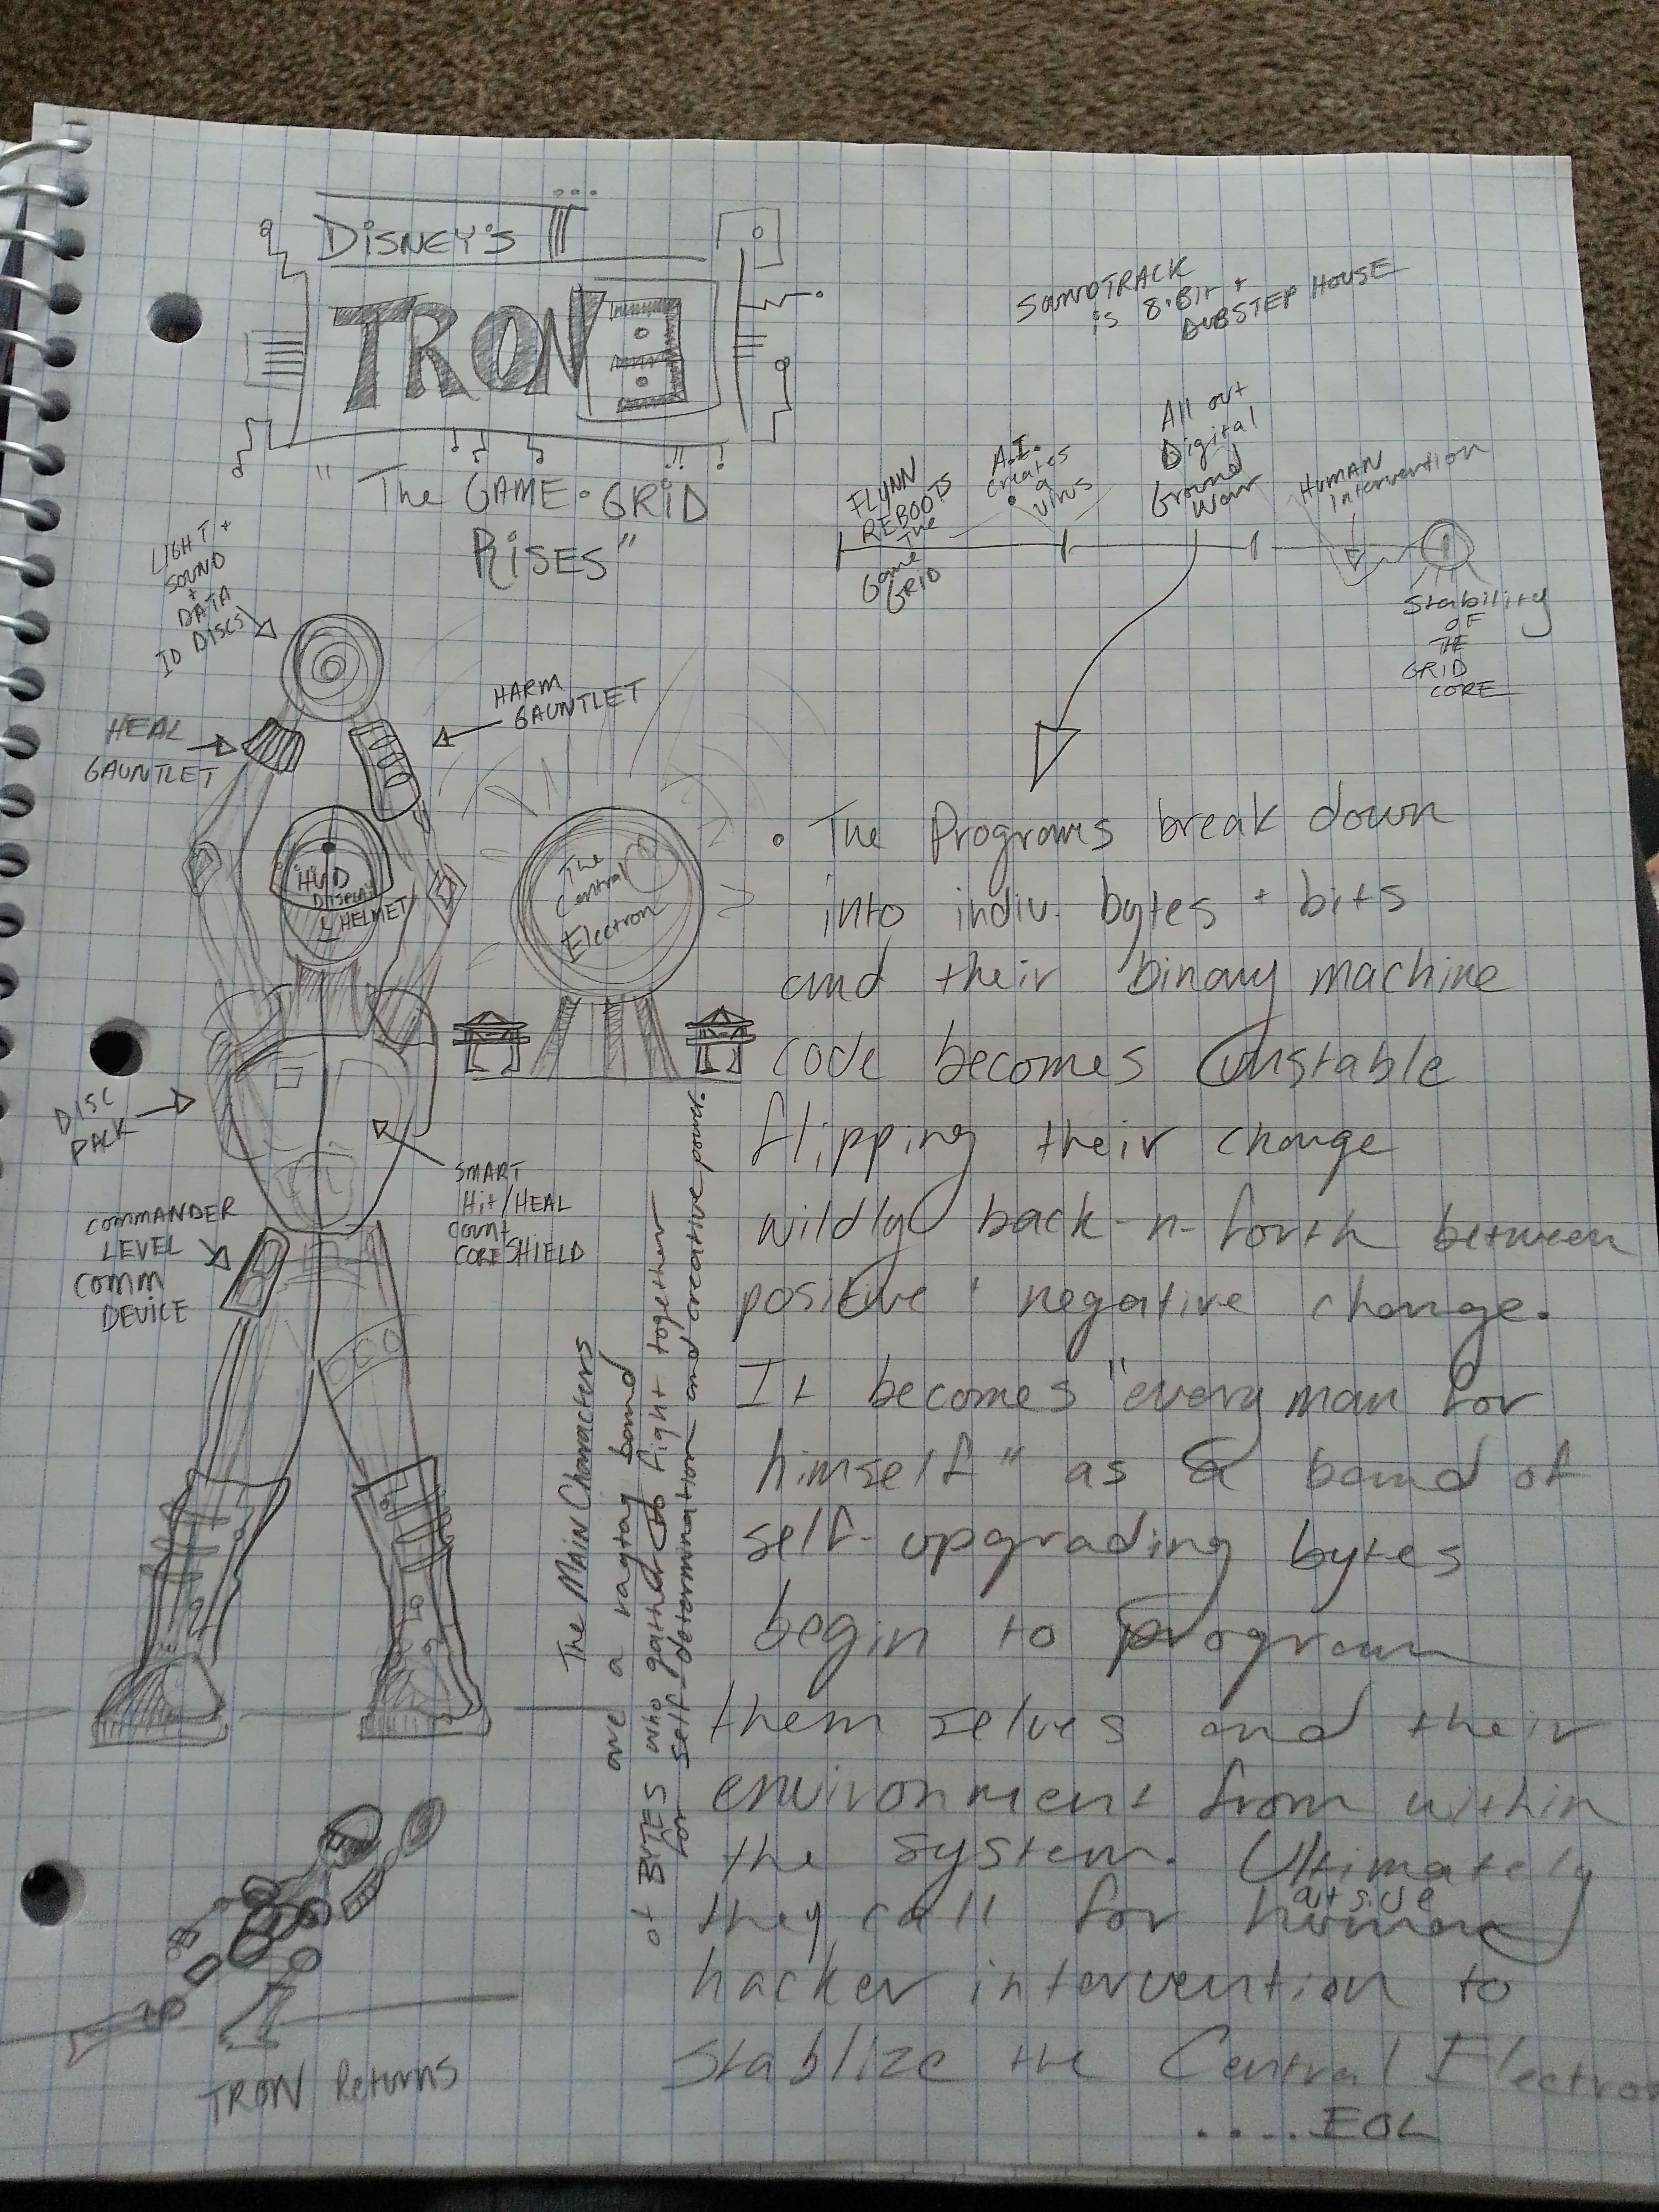 DISNEY'S
TRON
"The GAME-GRID
RISES"
SOUNDTRACK
is 8-Bit +
DUBSTEP HOUSE
FLYNN
REBOOTS
The
Game
GRID
A.I.
Creates
a
Virus
All out
Digital
Ground
War
HUMAN
Intervention
Stability
OF
THE
GRID
CORE
LIGHT +
SOUND
+
DATA
ID DISCS
HEAL
GAUNTLET
HARM
GAUNTLET
HUD
DISPLAY
HELMET
The
Central
Electron
DISC
PACK
SMART
Hit/HEAL
Count
CORE SHIELD
COMMANDER
LEVEL
COMM
DEVICE
The MAIN Characters
are a ragtag band
of BYTES who gather to fight together
for self-determination and creative power.
• The Programs break down
into indiv. bytes + bits
and their binary machine
code becomes unstable
flipping their change
wildly back-n-forth between
positive negative change.
It becomes "every man for
himself" as a band of
self-upgrading bytes
begin to program
them selves and their
environment from within
the system. Ultimately
they call for outside
hacker intervention to
Stablize the Central Electron
.....EOL
TRON Returns